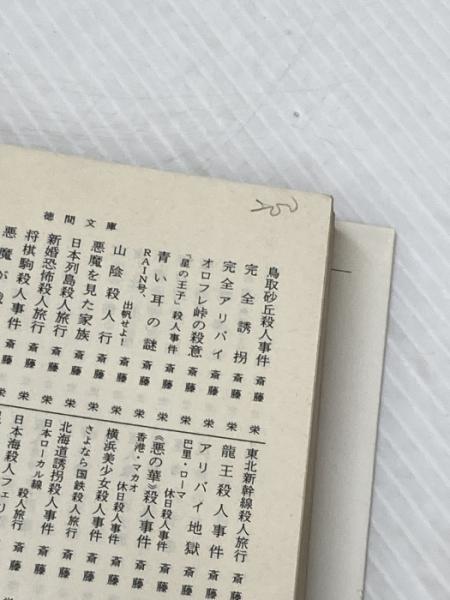 徳間文庫
250
鳥取砂丘殺人事件 斎藤 栄
完全誘拐 斎藤 栄
完全アリバイ 斎藤 栄
オロフレ峠の殺意 斎藤 栄
「星の王子」殺人事件 斎藤 栄
青い耳の謎 斎藤 栄
RAIN号、出帆せよ! 斎藤 栄
山陰殺人行 斎藤 栄
悪魔を見た家族 斎藤 栄
日本列島殺人旅行 斎藤 栄
新婚恐怖殺人旅行 斎藤 栄
将棋駒殺人事件 斎藤 栄
悪魔が
東北新幹線殺人旅行 斎藤 栄
龍王殺人事件 斎藤
アリバイ地獄 斎藤
巴里・ローマ 休日殺人事件 斎藤
《悪の華》殺人事件 斎藤
香港・マカオ 休日殺人事件 斎藤
横浜美少女殺人事件 斎藤
さよなら国鉄殺人旅行 斎藤
北海道誘拐殺人事件 斎藤
日本ローカル線 殺人旅行 斎藤
日本海殺人フェリ